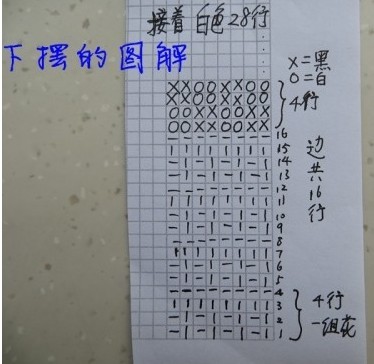 接着 白色28行
下摆的图解
X=黑
O=白
4行
XXOOXXOO
XXOOXXOO
OOXXOOXX
OOXXOOXX
16
15
14
13
12
11
10
9
8
7
6
5
4
3
2
1
边共16行
4行
一组花